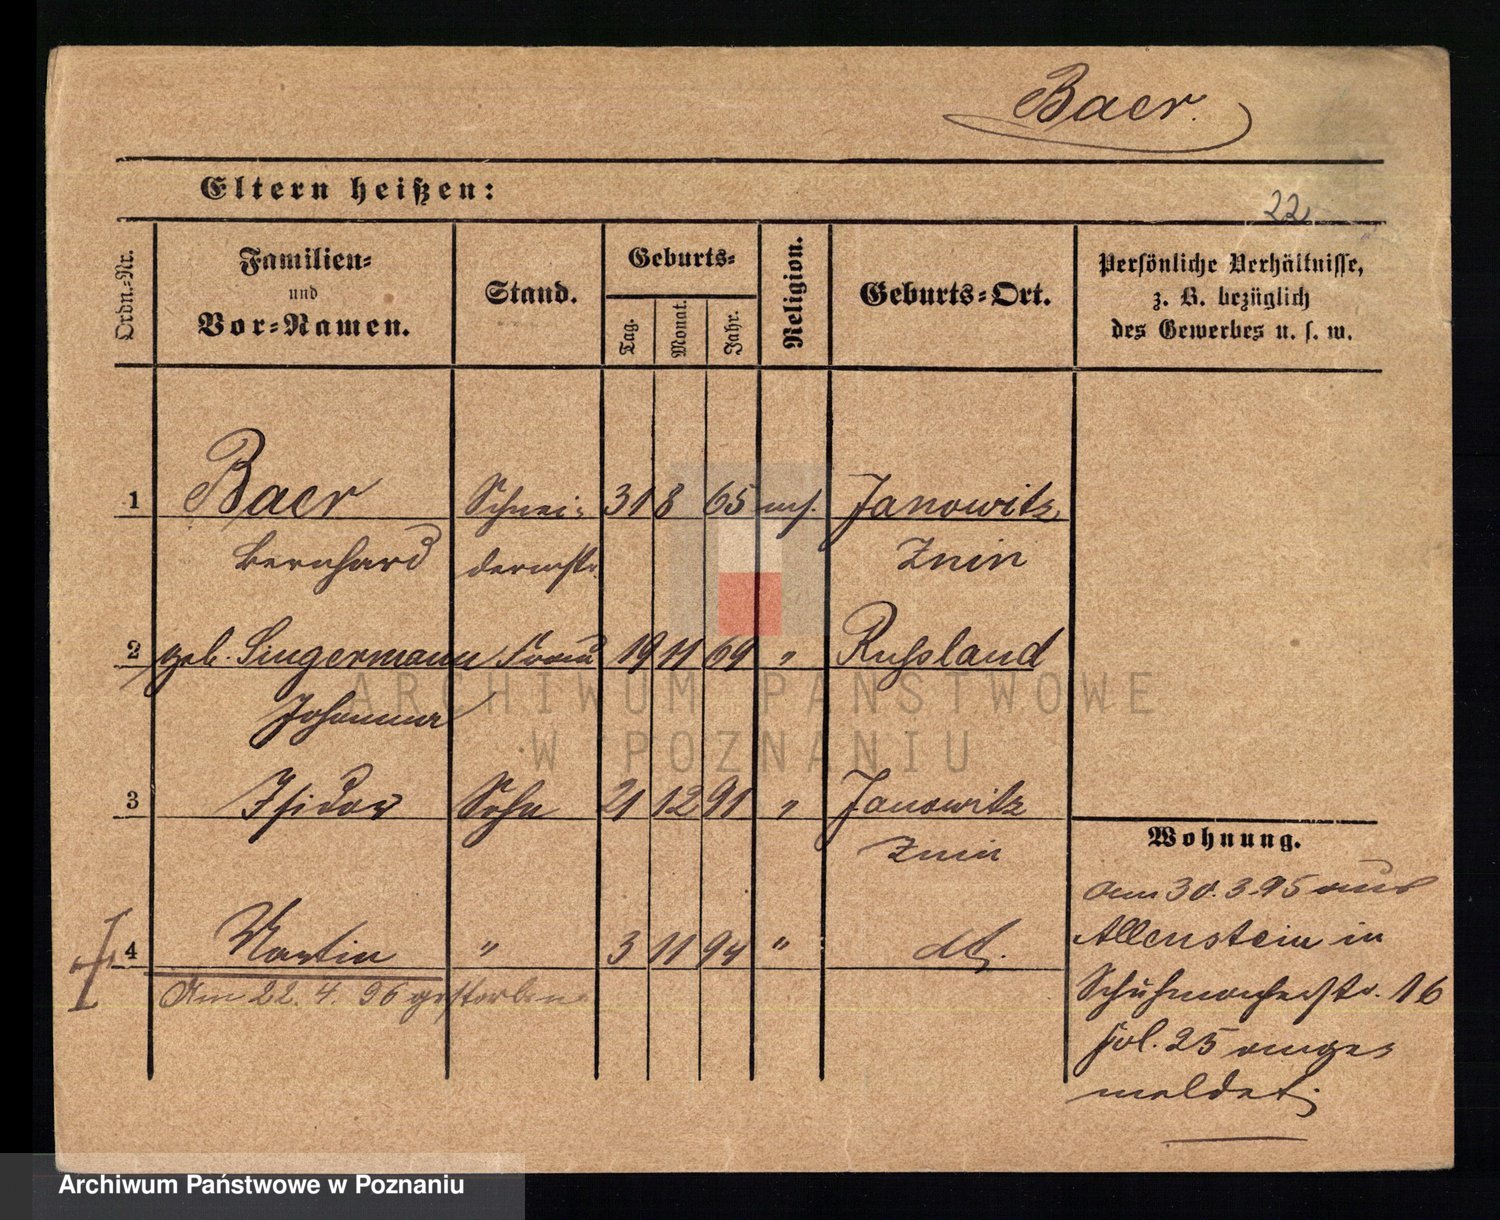 Baer.
Eltern heißen:
22
Ordn.-Nr.
Familien-
und
Vor-Namen.
Stand.
Geburts-
Tag.
Monat.
Jahr.
Religion.
Geburts-Ort.
Persönliche Verhältnisse,
z. B. bezüglich
des Gewerbes u. s. w.
1 Baer Schnei- 31 8 65 mos. Janowitz
Bernhard dermstr. Znin
2 geb. Singermann Frau 19 11 69 " Russland
Johanna
3 Isidor Sohn 21 12 91 " Janowitz
Znin
4 Martin " 3 11 94 " dt.
Am 22. 4. 96 gestorben
Wohnung.
Am 30. 3. 95 aus
Allenstein in
Schuhmacherstr. 16
fol. 25 ange-
meldet.
ARCHIWUM PAŃSTWOWE
W POZNANIU
Archiwum Państwowe w Poznaniu